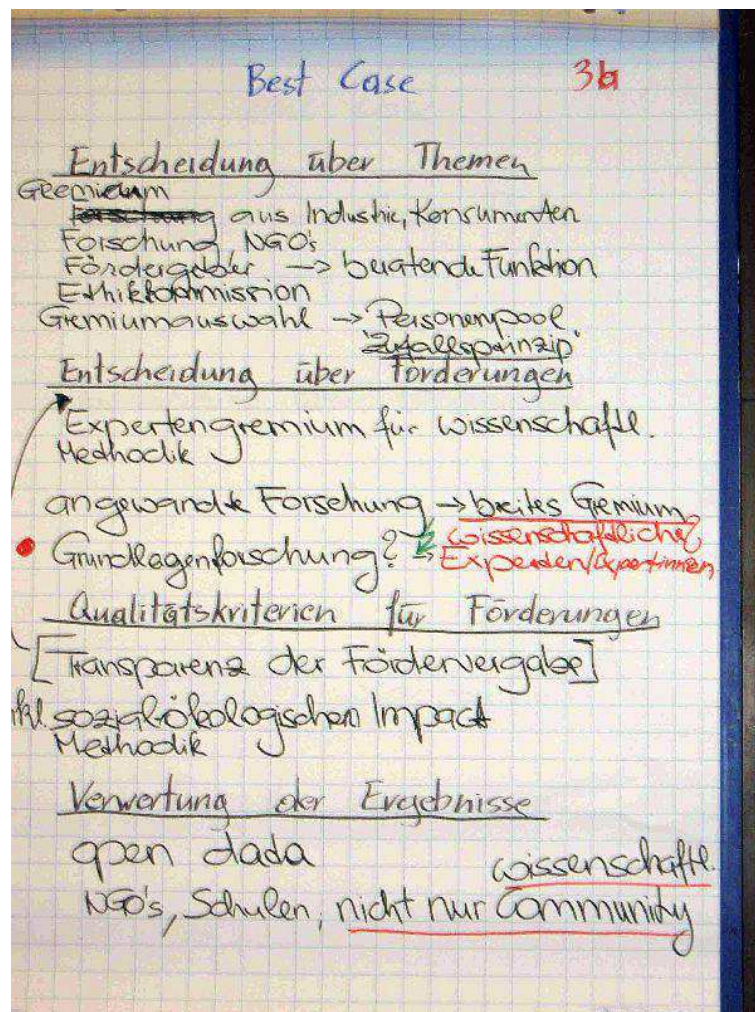 Best Case 3b
Entscheidung über Themen
Gremium
aus Industrie, Konsumenten
Forschung, NGO's
Fördergeber → beratende Funktion
Ethikkommission
Gremiumauswahl → Personenpool
"Zufallsprinzip"
Entscheidung über Förderungen
Expertengremium für wissenschaftl.
Methodik
angewandte Forschung → breites Gremium
Grundlagenforschung? → wissenschaftliche
Experten/Expertinnen
Qualitätskriterien für Förderungen
[Transparenz der Fördervergabe]
inkl. sozial-ökologischen Impact
Methodik
Verwertung der Ergebnisse
open data
wissenschaftl.
NGO's, Schulen, nicht nur Community